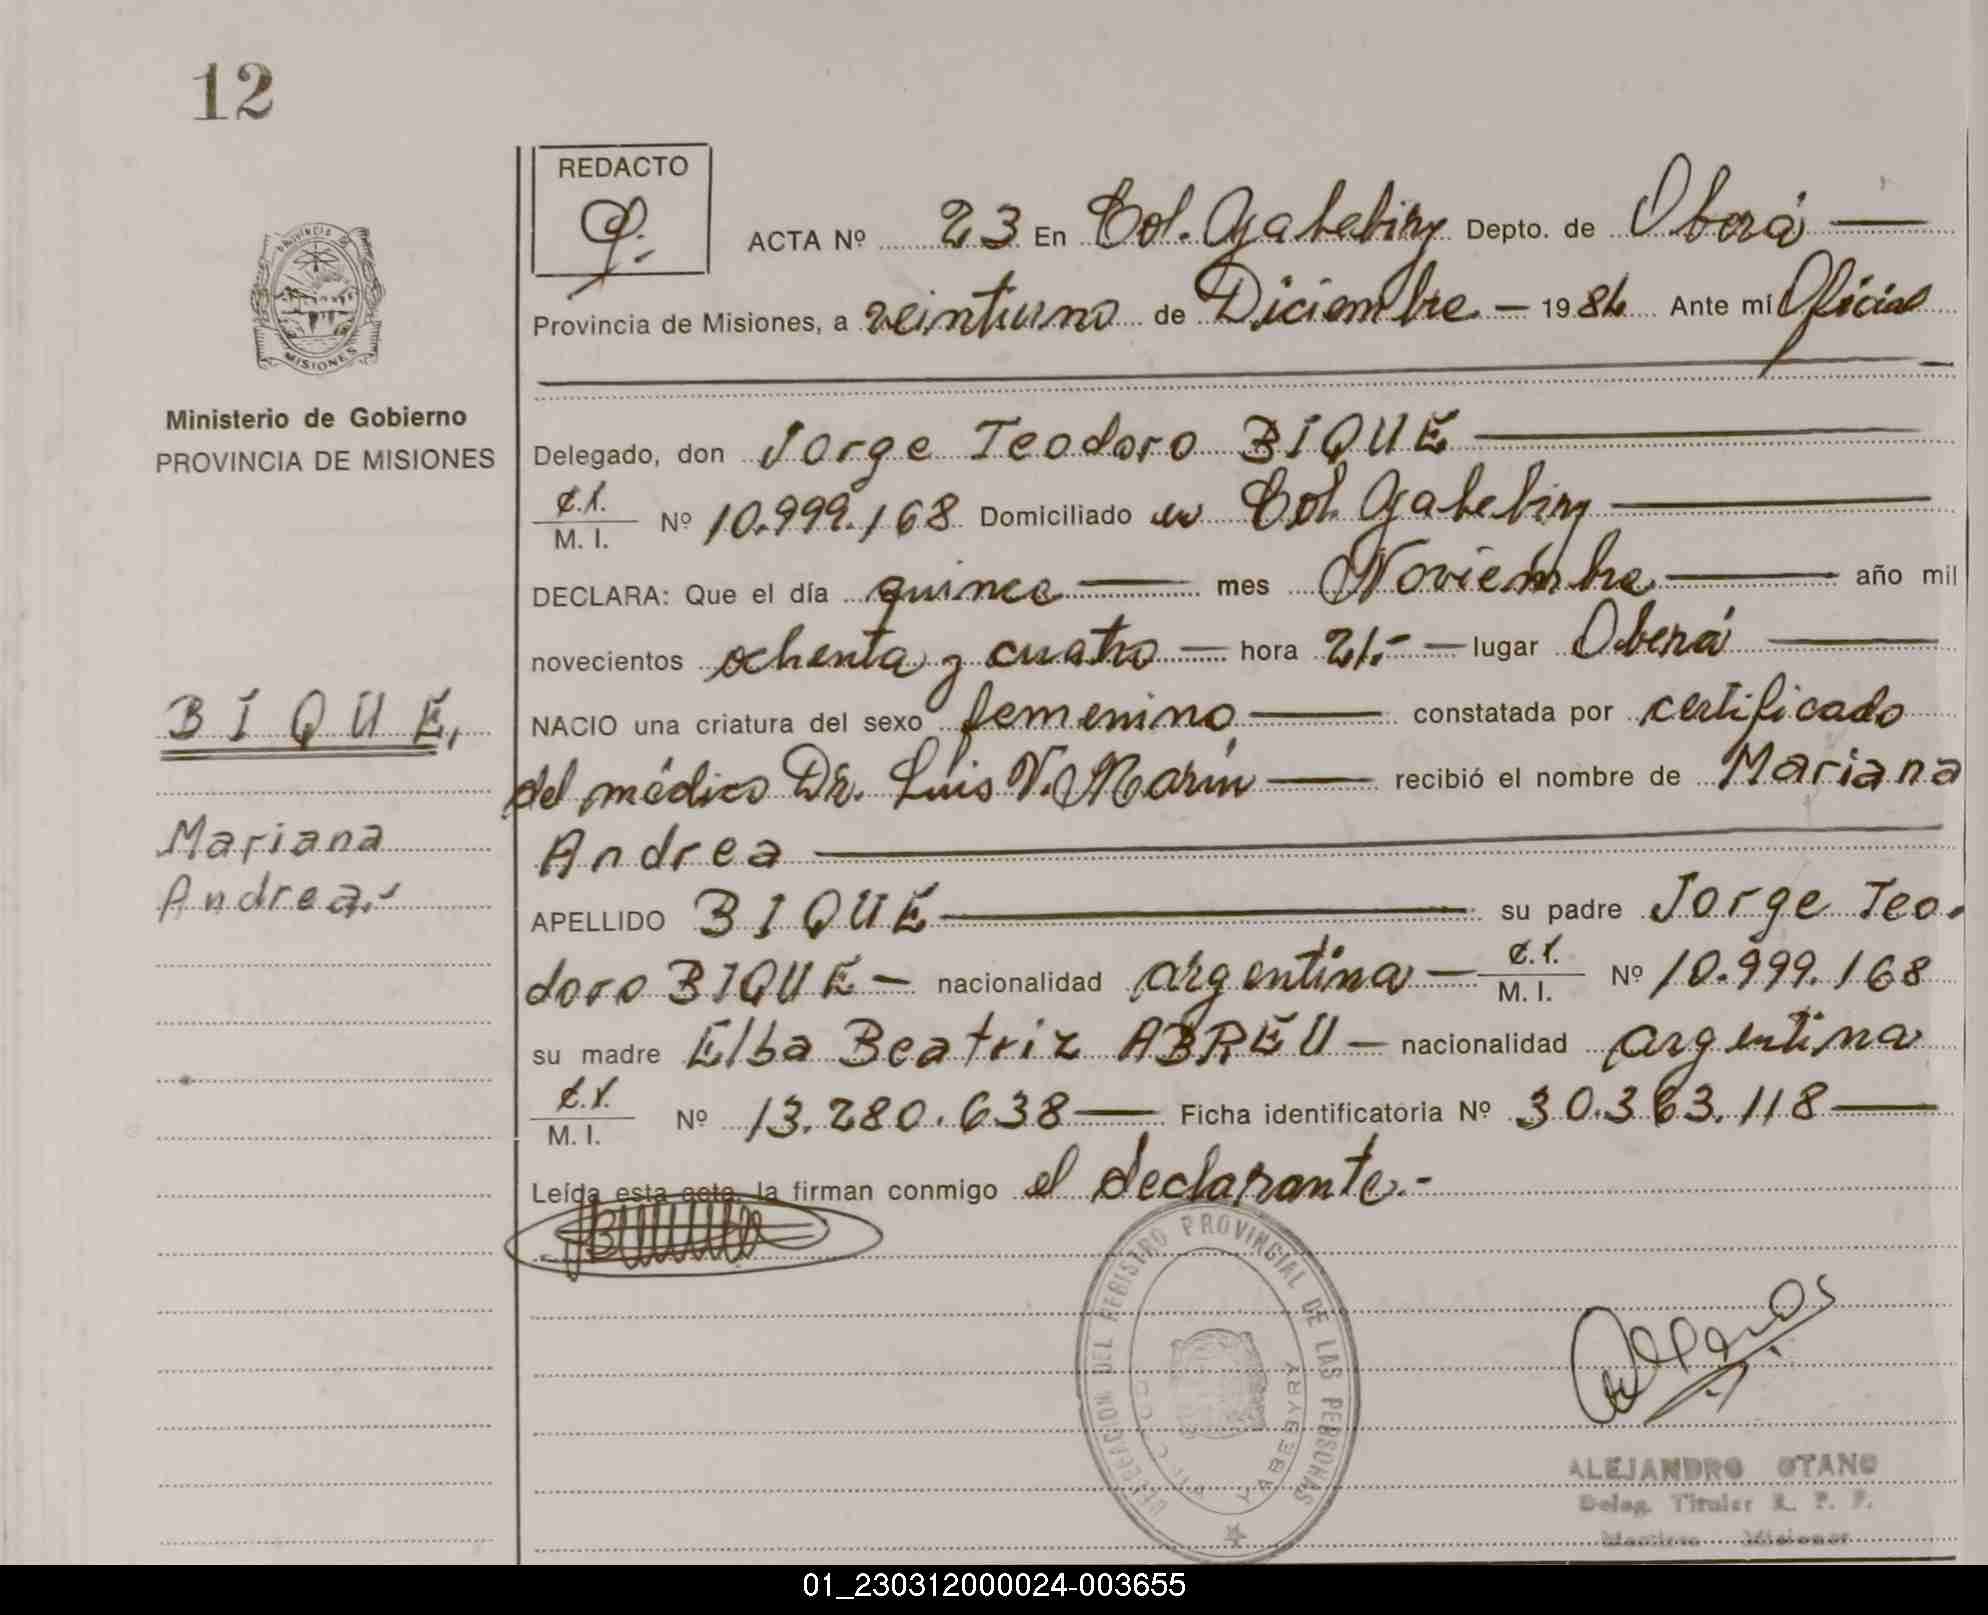 12
REDACTO
ACTA Nº 23 En Col. Yabebiry Depto. de Oberá
Provincia de Misiones, a veintiuno de Diciembre - 1984 Ante mí Oficial
PROVINCIA DE
MISIONES
Ministerio de Gobierno
PROVINCIA DE MISIONES
Delegado, don Jorge Teodoro BIQUE
C.I.
M. I. Nº 10.999.168 Domiciliado en Col. Yabebiry
DECLARA: Que el día quince mes Noviembre año mil
novecientos ochenta y cuatro - hora 21.- - lugar Oberá
BIQUE,
NACIO una criatura del sexo femenino constatada por certificado
del médico Dr. Luis V. Marín recibió el nombre de Mariana
Mariana
Andrea
Andrea.-
APELLIDO BIQUE su padre Jorge Teo-
doro BIQUE - nacionalidad argentina - C.I.
M. I. Nº 10.999.168
su madre Elba Beatriz ABREU - nacionalidad argentina
C.I.
M. I. Nº 13.280.638 Ficha identificatoria Nº 30.363.118
Leída esta acta, la firman conmigo el declarante.-
DIRECCION DEL REGISTRO PROVINCIAL DE LAS PERSONAS
YABEBYRY
ALEJANDRO OTANO
Deleg. Titular R. P. P.
Misiones
01_230312000024-003655